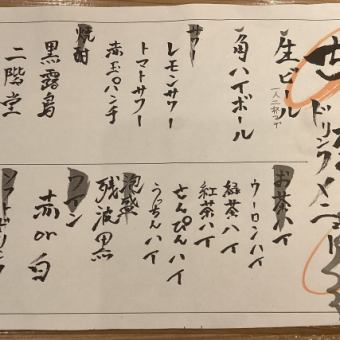 ドリンクメニュー
生ビール
一人二杯まで
角ハイボール
サワー
レモンサワー
トマトサワー
赤玉パンチ
焼酎
黒霧島
二階堂
お茶ハイ
ウーロンハイ
緑茶ハイ
紅茶ハイ
さんぴんハイ
うっちんハイ
泡盛
残波黒
ワイン
赤or白
ソフトドリンク